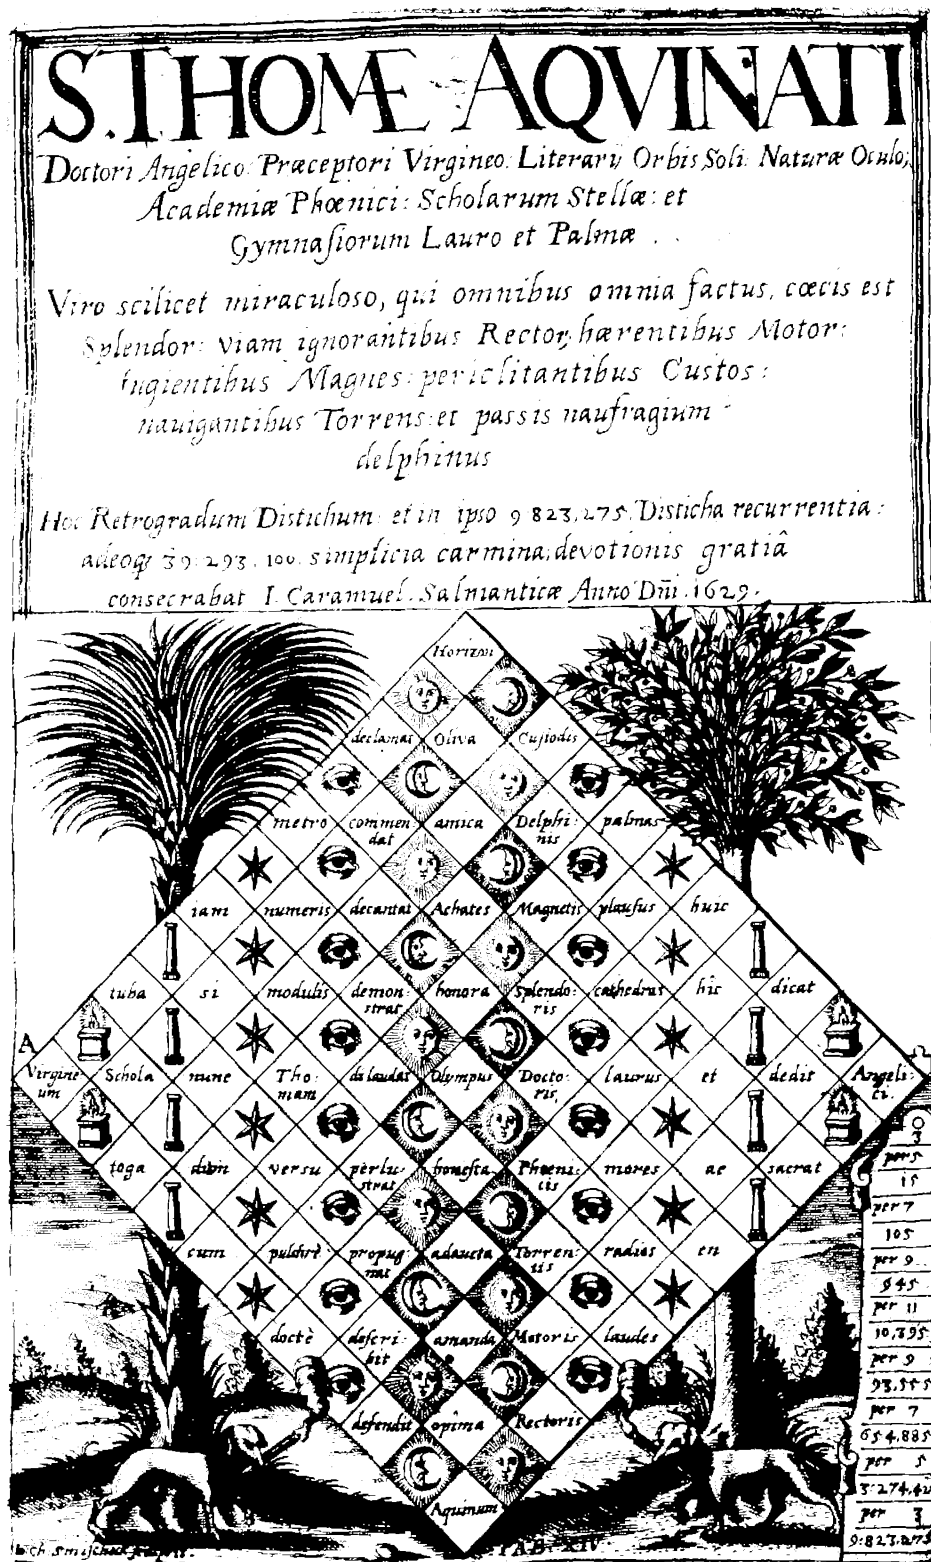 S. THOMÆ AQVINATI
Doctori Angelico: Præceptori Virgineo: Literarij Orbis Soli: Naturæ Oculo;
Academiæ Phœnici: Scholarum Stellæ: et
Gymnasiorum Lauro et Palmæ
Viro scilicet miraculoso, qui omnibus omnia factus, cœcis est
Splendor: viam ignorantibus Rector; hærentibus Motor:
fugientibus Magnes: periclitantibus Custos:
nauigantibus Torrens: et passis naufragium
delphinus
Hoc Retrogradum Distichum: et in ipso 9.823,275. Disticha recurrentia:
adeoq; 39.293.100. simplicia carmina; devotionis gratiâ
consecrabat I. Caramuel. Salmanticæ Anno Dñi. 1629.
Horizon
declamat Oliva Custodis
metro commen- amica Delphi- palmas
dat nis
iam numeris decantat Achates Magnetis plausus huic
tuba si modulis demon- honora Splendo- cathedras his dicat
strat ris
A
Virgine- Schola nunc Tho- delaudat Olympus Docto- laurus et dedit Angeli-
um mam ris ci.
toga dum versu perlu- honesta Phœni- mores ac sacrat
strat cis
cum pulchrè propug- adaucta Torren- radios en
nat tis
doctè descri- amanda Motoris laudes
bit
defendit opîma Rectoris
Aquinum
3
per 5
15
per 7
105
per 9
945
per 11
10,395
per 9
93,555
per 7
654,885
per 5
3.274,42
per 3
9:823,275
TAB. XIV